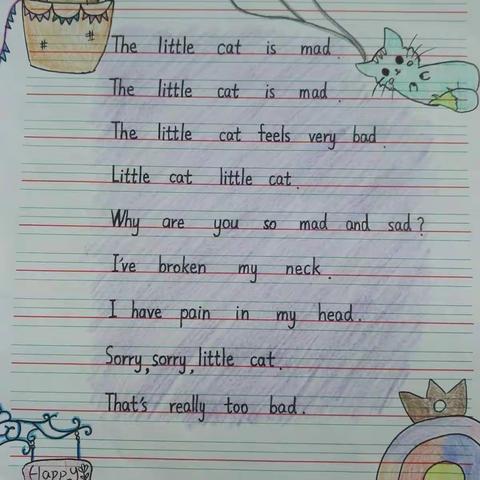 The little cat is mad.
The little cat is mad.
The little cat feels very bad.
Little cat little cat.
Why are you so mad and sad?
I've broken my neck.
I have pain in my head.
Sorry, sorry, little cat.
That's really too bad.
Happy